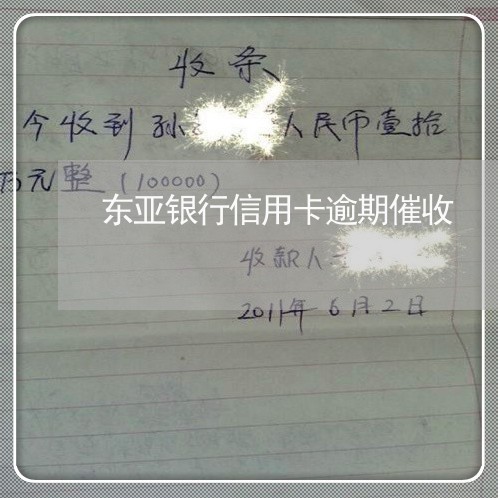 收条
今收到孙 人民币壹拾
万元整（100000）
东亚银行信用卡逾期催收
收款人
2011年6月2日